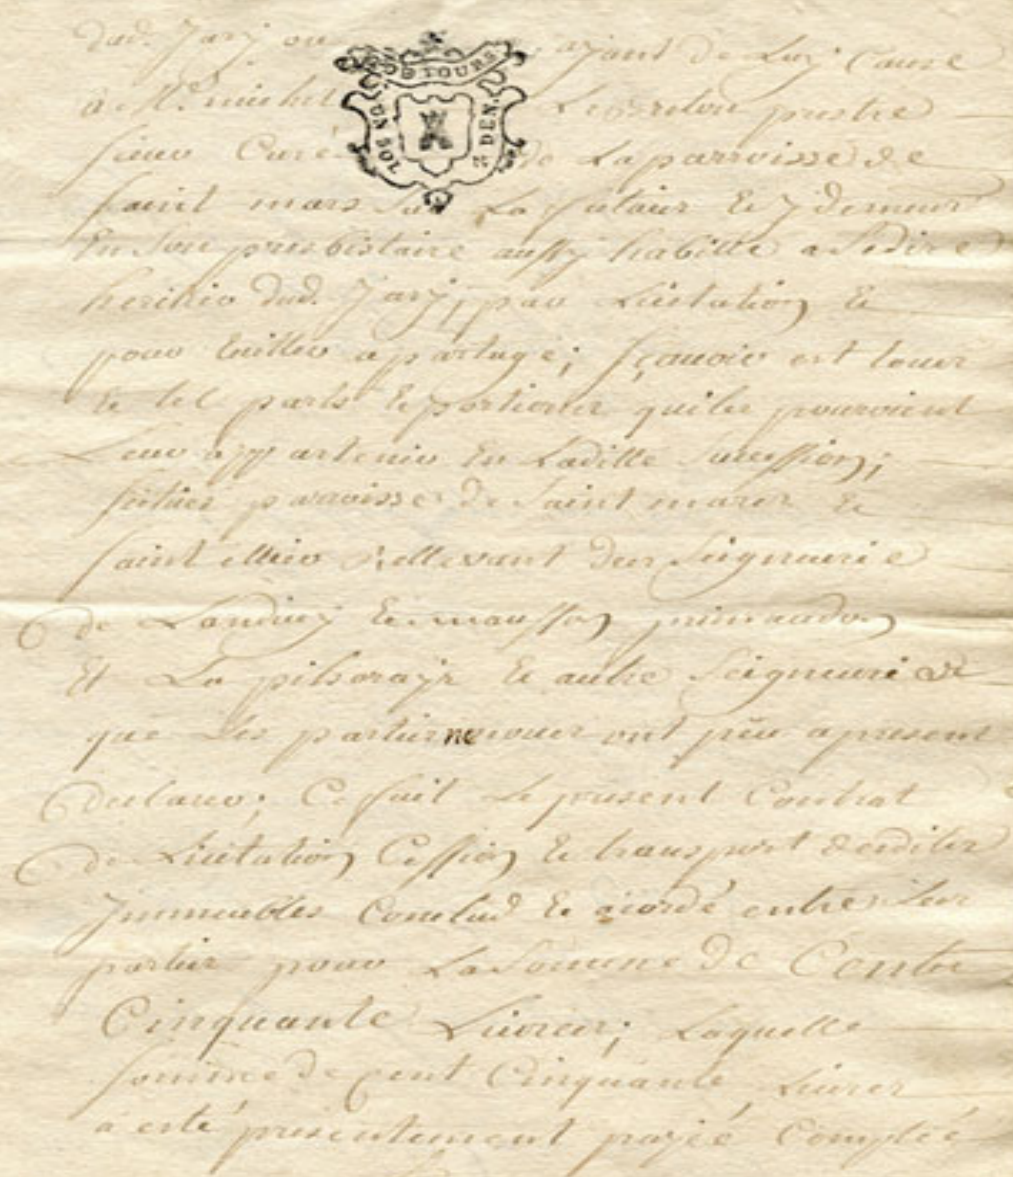 dud. Jarj ou ayant de Luy Cause
TOURS
UN SOL 2 DEN.
a Mr. michel prestre
sieur Curé de La parroisse de
saint mars Sur La futaier Et y demeur
En Son presbistaire aussy habille a Se dire
heritier dud. Jarj, par Licitation Et
pour Eviller a partage; sçauoir est touer
Et tel parts Et portions quiler pouroient
Leur appartenir En Laditte Sucession;
parroisse de Saint marer Et
saint ellier Rellevant deur Seigneurie
de Landiuy Et mausson
Et La pihoraye Et autre Seigneurie
que Les partier ne nouer ont peu a present
declarer; Ce fait Le present Contrat
de Licitation Cession Et transport desditer
Jmmeubles Conclud Et acordé entre Leer
partier pour La Somme de Cent
Cinquante Livrer; Laquelle
somme de cent Cinquante Livrer
a esté presentement payée Comptée